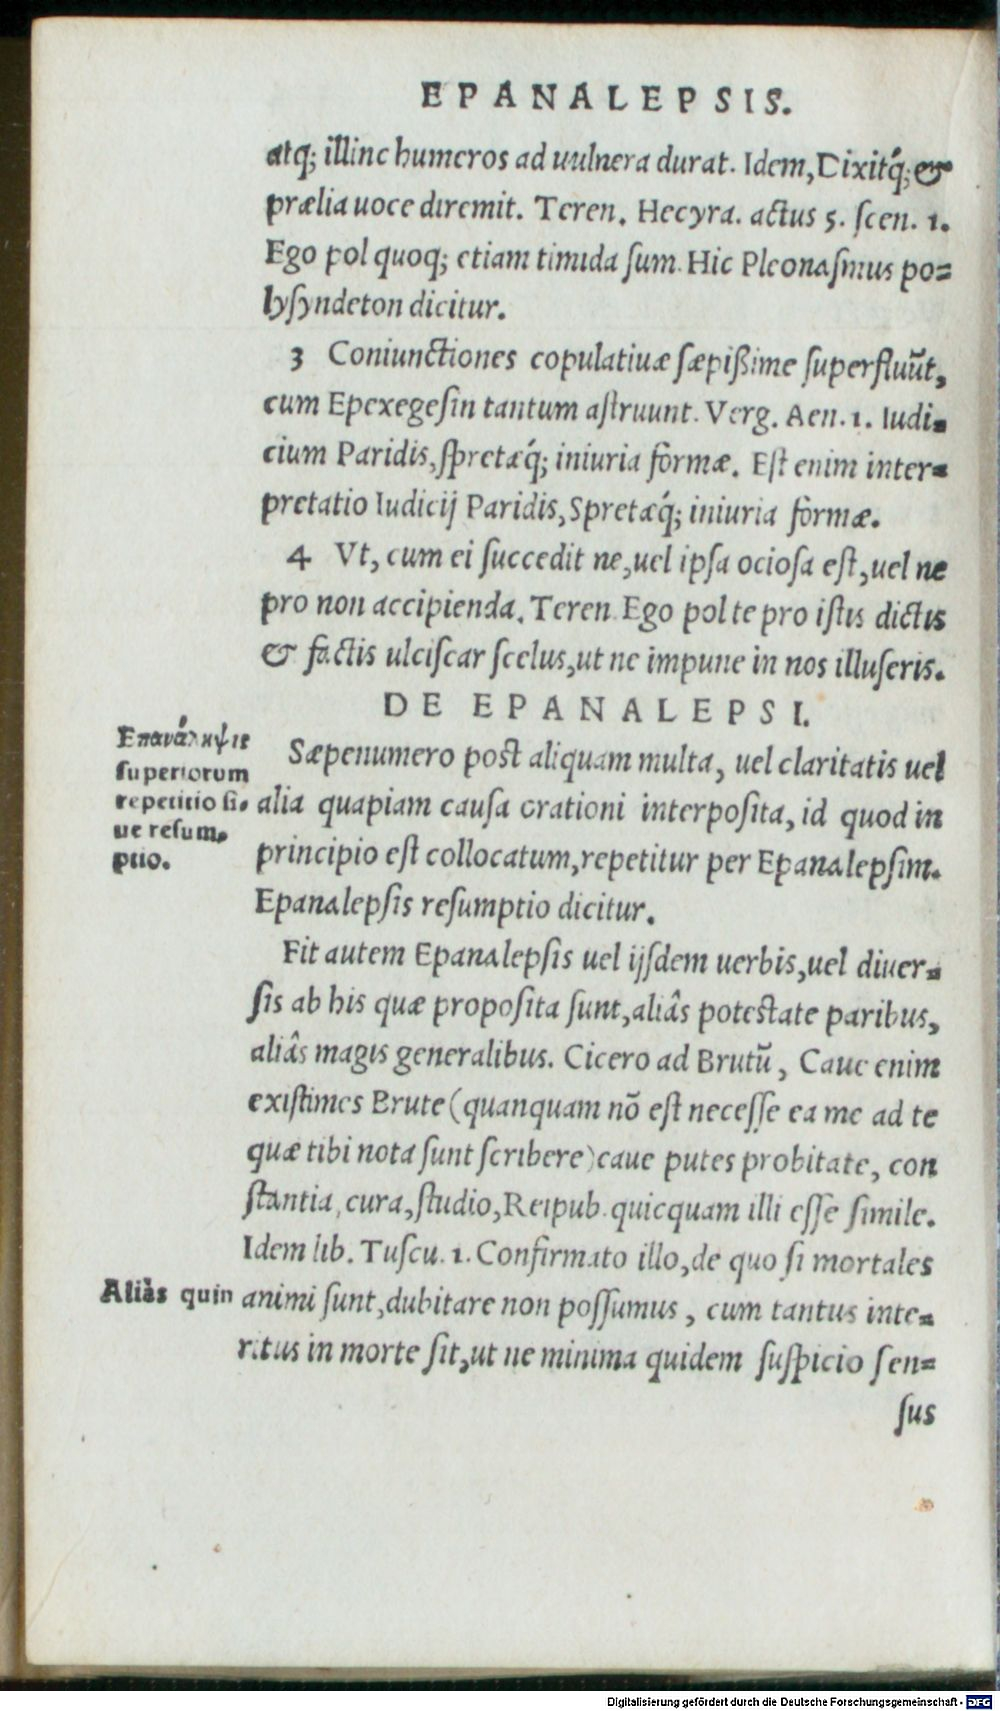 EPANALEPSIS.
atq; illinc humeros ad uulnera durat. Idem, Dixitq́; &
prælia uoce diremit. Teren. Hecyra. actus 5. ſcen. 1.
Ego pol quoq; etiam timida ſum. Hic Pleonaſmus po=
lyſyndeton dicitur.
3 Coniunctiones copulatiuæ ſæpißime ſuperfluũt,
cum Epexegeſin tantum aſtruunt. Verg. Aen. 1. Iudi=
cium Paridis, ſpretæq́; iniuria formæ. Eſt enim inter=
pretatio Iudicij Paridis, Spretæq́; iniuria formæ.
4 Vt, cum ei ſuccedit ne, uel ipſa ocioſa eſt, uel ne
pro non accipienda. Teren. Ego pol te pro iſtis dictis
& factis ulciſcar ſcelus, ut ne impune in nos illuſeris.
DE EPANALEPSI.
Επανάληψις
ſuperiorum
repetitio ſi=
ue reſum=
ptio.
Sæpenumero post aliquam multa, uel claritatis uel
alia quapiam cauſa orationi interpoſita, id quod in
principio eſt collocatum, repetitur per Epanalepſim.
Epanalepſis reſumptio dicitur.
Fit autem Epanalepſis uel ijſdem uerbis, uel diuer=
ſis ab his quæ propoſita ſunt, aliâs poteſtate paribus,
aliâs magis generalibus. Cicero ad Brutũ, Caue enim
exiſtimes Brute (quanquam nõ eſt neceſſe ea me ad te
quæ tibi nota ſunt ſcribere) caue putes probitate, con
ſtantia, cura, ſtudio, Reipub. quicquam illi eſſe ſimile.
Idem lib. Tuſcu. 1. Confirmato illo, de quo ſi mortales
Aliàs quin
animi ſunt, dubitare non poſſumus, cum tantus inte=
ritus in morte ſit, ut ne minima quidem ſuſpicio ſen=
ſus
Digitalisierung gefördert durch die Deutsche Forschungsgemeinschaft - DFG